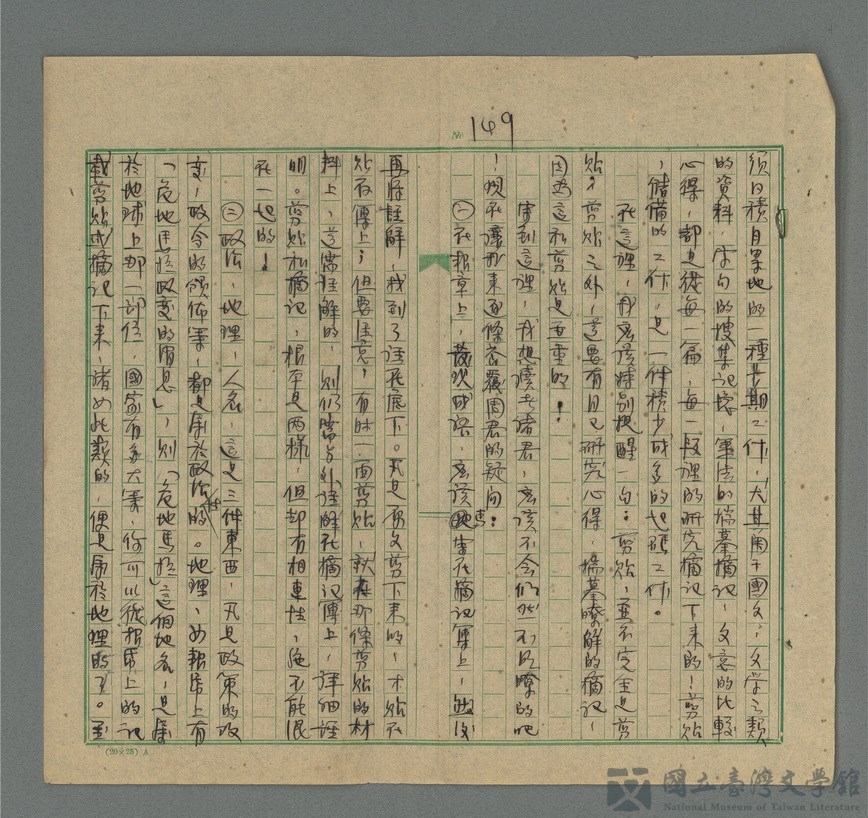 No 149
須日積月累地的一種長期工作，尤其用于國文，文學之類
的資料，字句的搜集記憶，筆法的揣摹摘記，文意的比較
心得，都是從每一篇，每一段裡的研究摘記下来的！剪貼
，儲備的工作，是一件積少成多的起碼工作。
在這裡，我應該特別提醒一句：剪貼，並不完全是剪
貼，剪貼之外，還要有自己研究心得，揣摹瞭解的摘記，
因為這和剪貼是並重的！
寫到這裡，我想讀者諸君，應該不會仍然不明瞭的吧
！現在讓我来逐條答覆周君的疑問：
㈠在報章上，發現成語，應該書在摘記簿上，然後
再將註解，找到了註在底下。凡是原文剪下来的，才貼在
貼存簿上；但要注意，有时一面剪貼，那條剪貼的材
料上，還需註解的，則仍需另外註解在摘記簿上，詳細註
明。剪貼和摘記，根本是两樣，但却有相連性，絕不能混
在一起的！
㈡政治，地理，人名，這是三件東西，凡是政策的改
变，政令的頒佈等，都是属於政治性的。地理，如報紙上有
「危地馬拉政变的消息」，則「危地馬拉」這個地名，是屬
於地球上那一部份，國家有多大等，你可以從報紙上的記
載剪貼或摘記下来，諸如此類的，便是屬於地理的了。至
(20×25) A
國立臺灣文學館
National Museum of Taiwan Literature